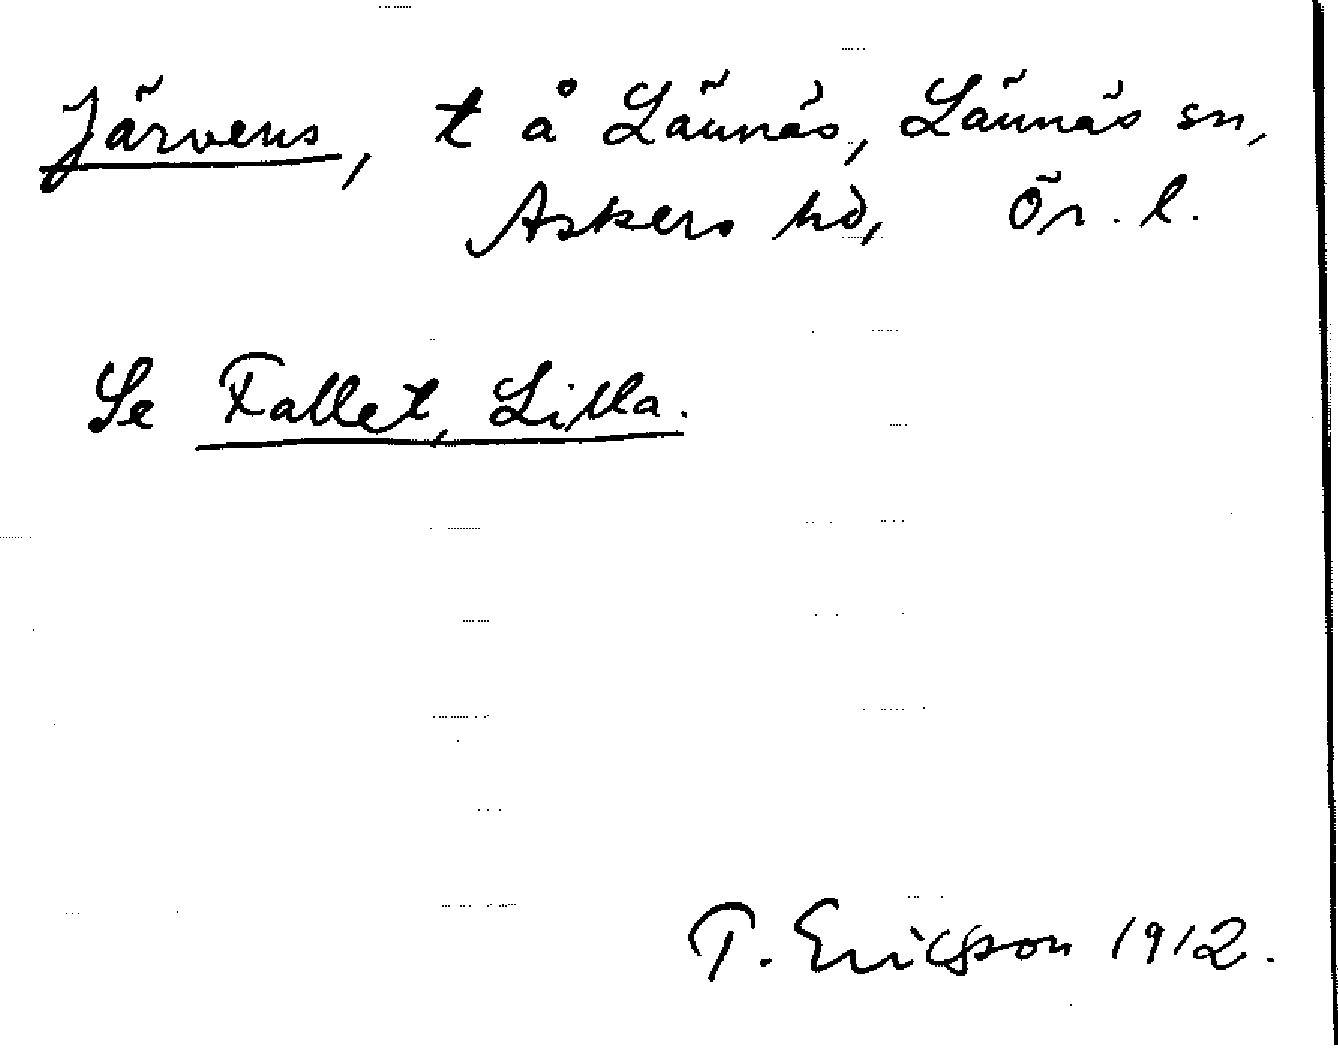 Järvens, t å Lännäs, Lännäs sn,
Askers hd, Ör. l.
Se Fallet, Lilla.
T. Ericsson 1912.